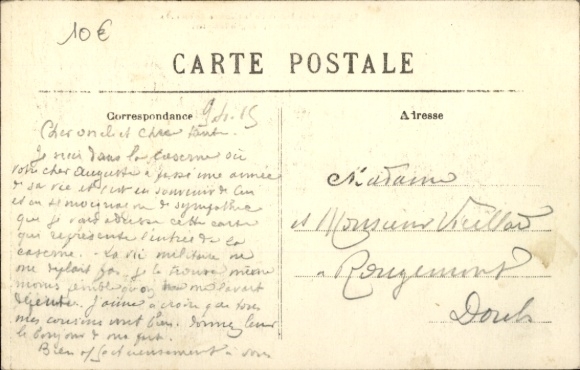 10€
CARTE POSTALE
Correspondance
Adresse
Cher oncle et Chère tante.
Je suis dans la caserne où
votre cher Auguste a passé une année
de sa vie et c'est en souvenir de lui
et en témoignage de sympathie
que je vous adresse cette carte
qui représente l'entrée de la
caserne. La vie militaire ne
me déplait pas. je la trouve même
moins pénible qu'on me l'avait
J'aime à croire que tous
mes cousins vont bien. donnez leur
le bonjour de ma part.
Bien affectueusement à vous
Madame
et Monsieur Vieillard
à Rougemont
Doubs